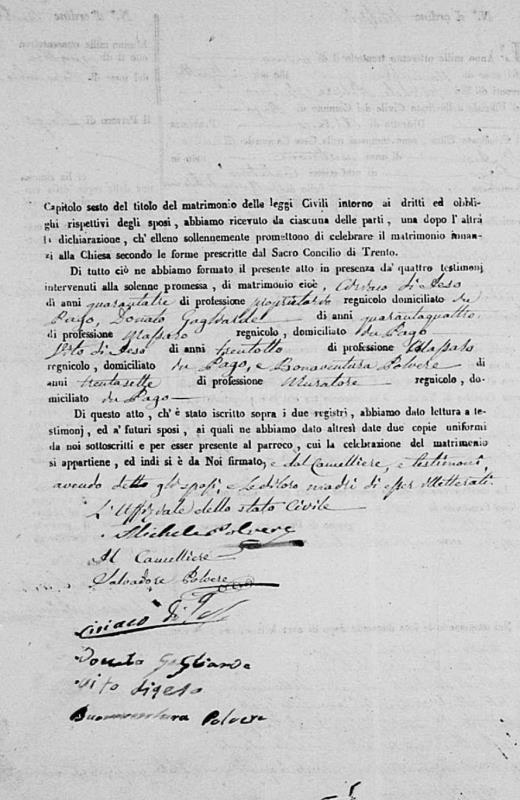 Capitolo sesto del titolo del matrimonio delle leggi Civili intorno ai dritti ed obbli-
ghi rispettivi degli sposi, abbiamo ricevuto da ciascuna delle parti, una dopo l' altra
la dichiarazione, ch' elleno sollennemente promettono di celebrare il matrimonio innan-
zi alla Chiesa secondo le forme prescritte dal Sacro Concilio di Trento.
Di tutto ciò ne abbiamo formato il presente atto in presenza da' quattro testimonj
intervenuti alla solenne promessa, di matrimonio cioè, di Geso
di anni quarantatre di professione proprietario regnicolo domiciliato in
Pago, Donato Gagliarde di anni quarantaquattro
di professione Massaro regnicolo, domiciliato in Pago
Vito di Geso di anni trentotto di professione Massaro
regnicolo, domiciliato in Pago, e Bonaventura Polvere di
anni trentasette di professione Muratore regnicolo, do-
miciliato in Pago
Di questo atto, ch' è stato iscritto sopra i due registri, abbiamo dato lettura a te-
stimonj, ed a' futuri sposi, ai quali ne abbiamo dato altresì date due copie uniformi
da noi sottoscritti e per esser presente al parroco, cui la celebrazione del matrimonio
si appartiene, ed indi si è da Noi firmato, e dal Cancelliere, e testimoni,
avendo detto gli sposi, e le di loro madri di esser illetterati
L'Uffiziale dello stato Civile
Michele Polvere
Il Cancelliere
Salvadore Polvere
Ciriaco di
Donato Gagliarde
Vito di geso
Buonaventura Polvere